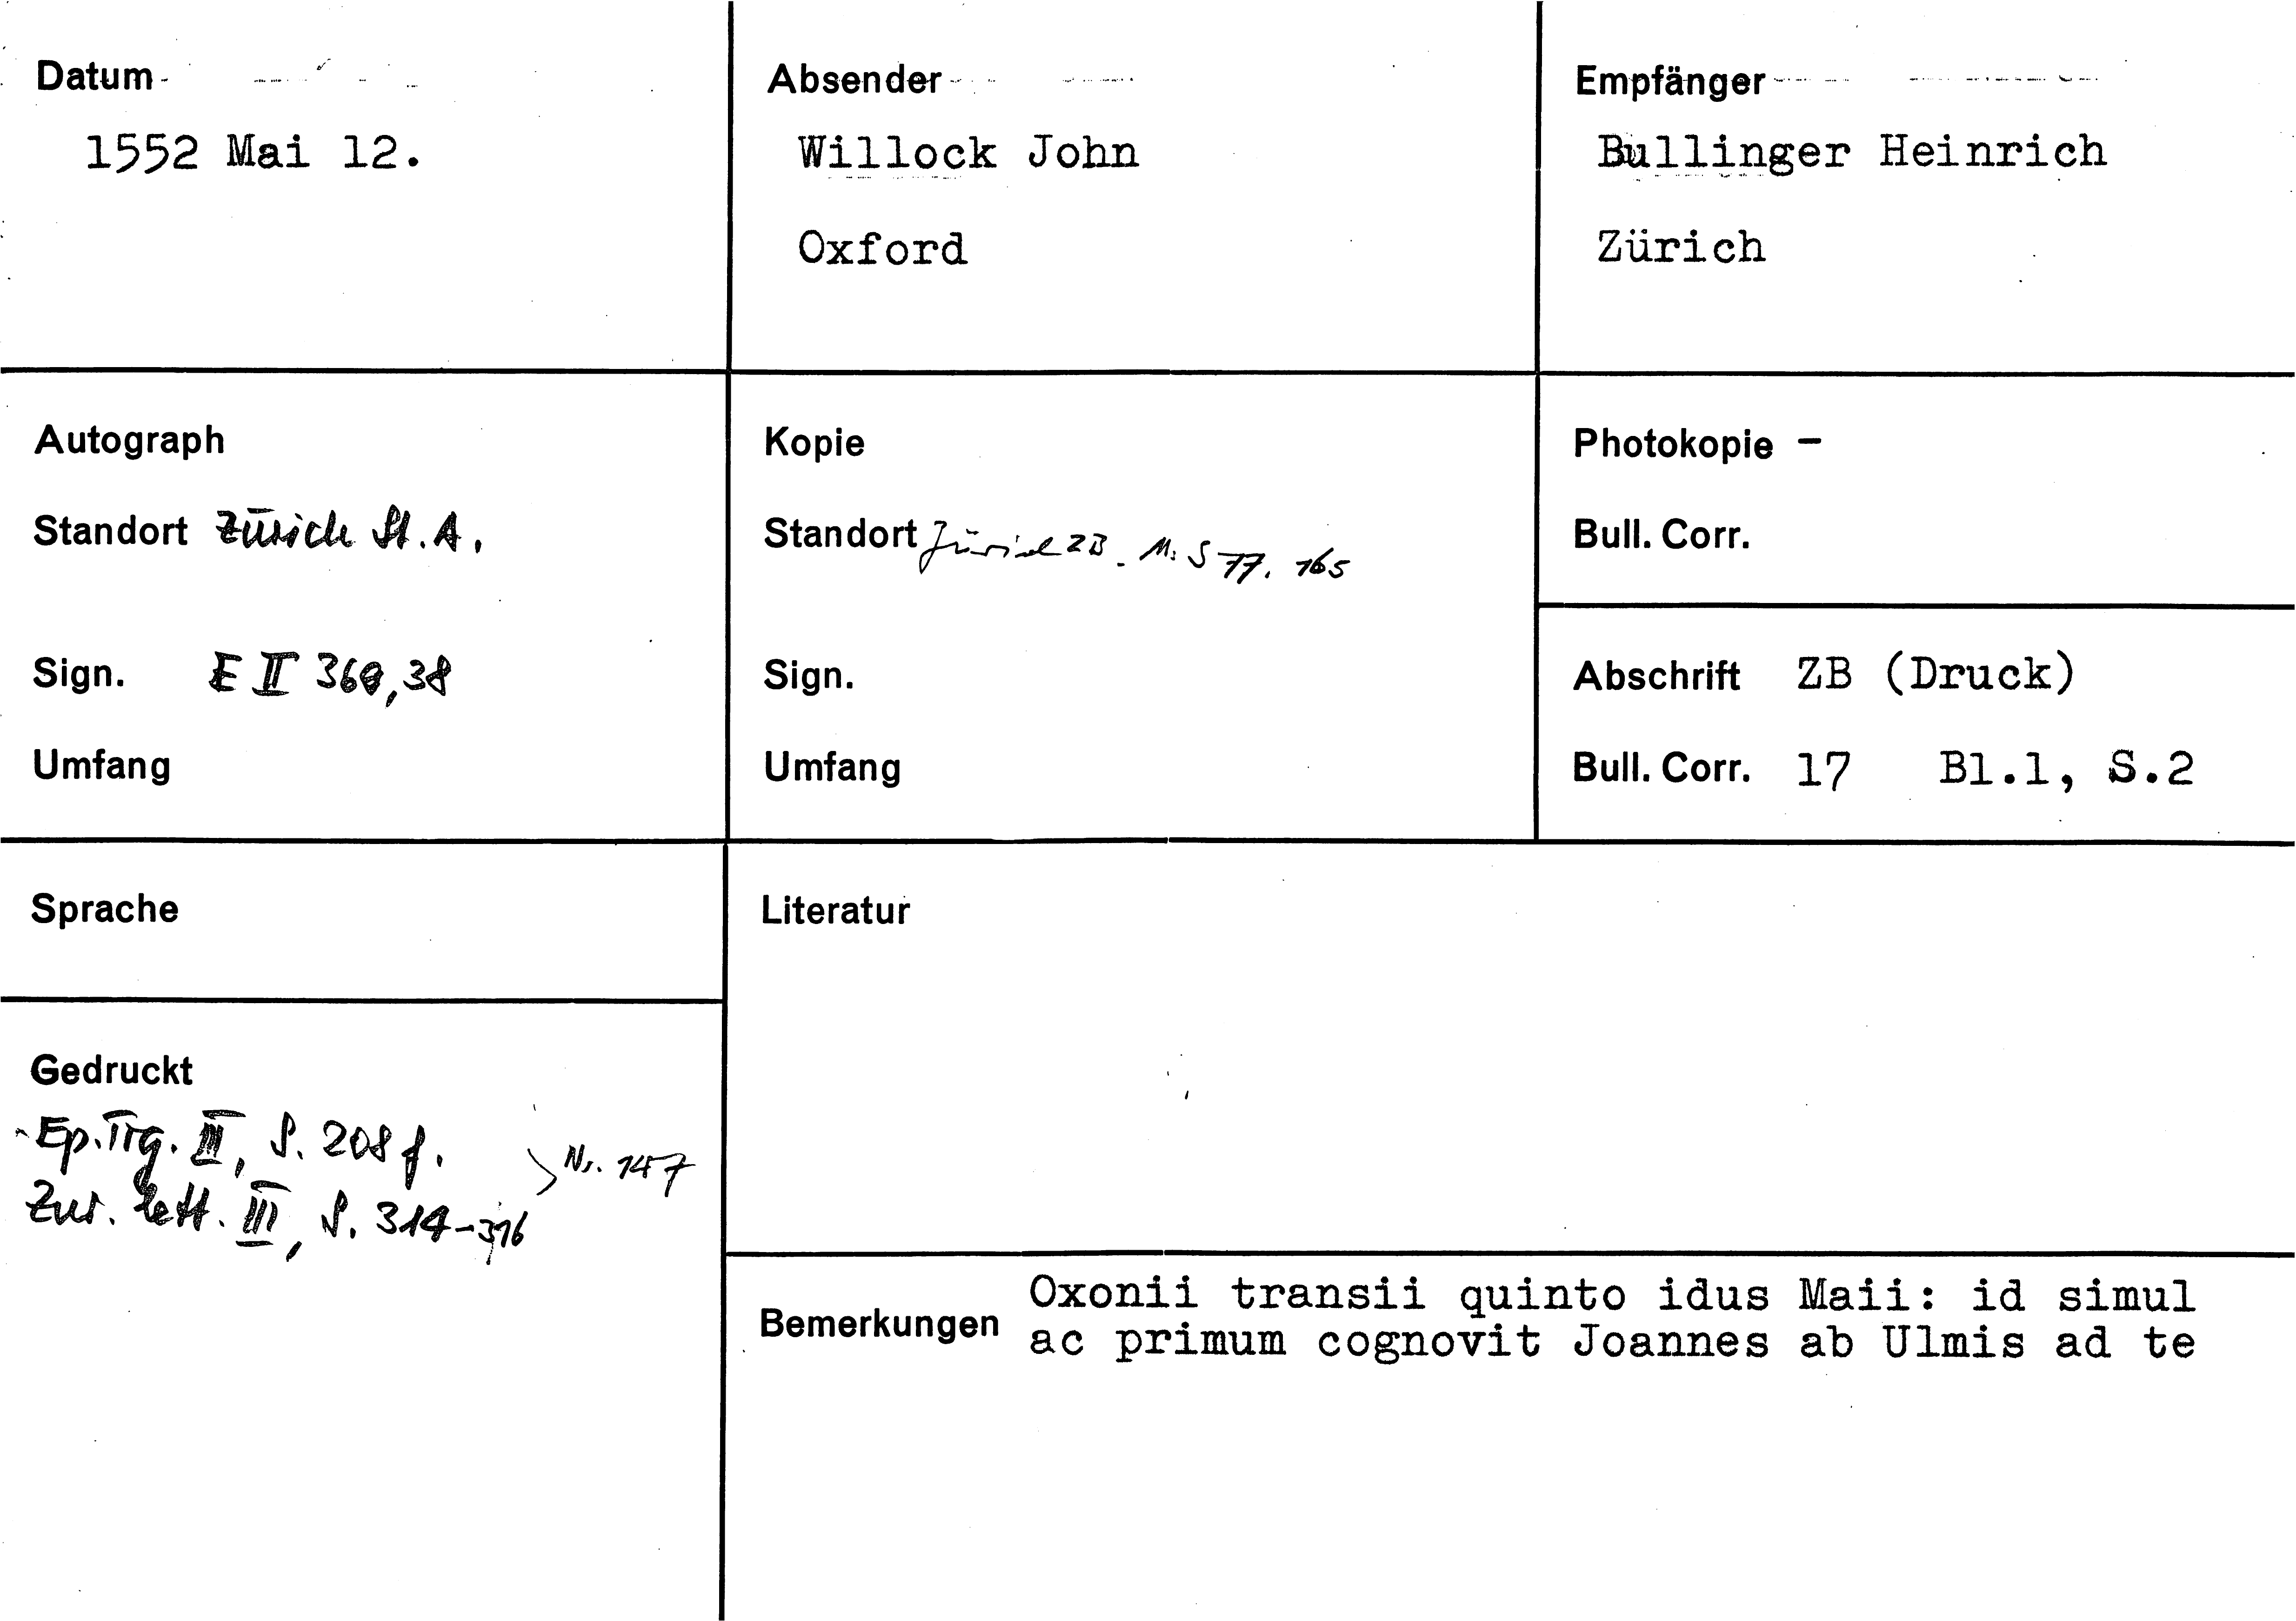 Datum
1552 Mai 12.
Absender
Willock John
Oxford
Empfänger
Bullinger Heinrich
Zürich
Autograph
Standort Zürich St. A.
Sign. E II 369,38
Umfang
Kopie
Standort Zürich ZB. Ms S 77. 165
Sign.
Umfang
Photokopie –
Bull. Corr.
Abschrift ZB (Druck)
Bull. Corr. 17 Bl.1, S.2
Sprache
Literatur
Gedruckt
Ep. Tig. III, S. 208 f.
Zur. Lett. III, S. 314-316
Nr. 147
Bemerkungen
Oxonii transii quinto idus Maii: id simul
ac primum cognovit Joannes ab Ulmis ad te